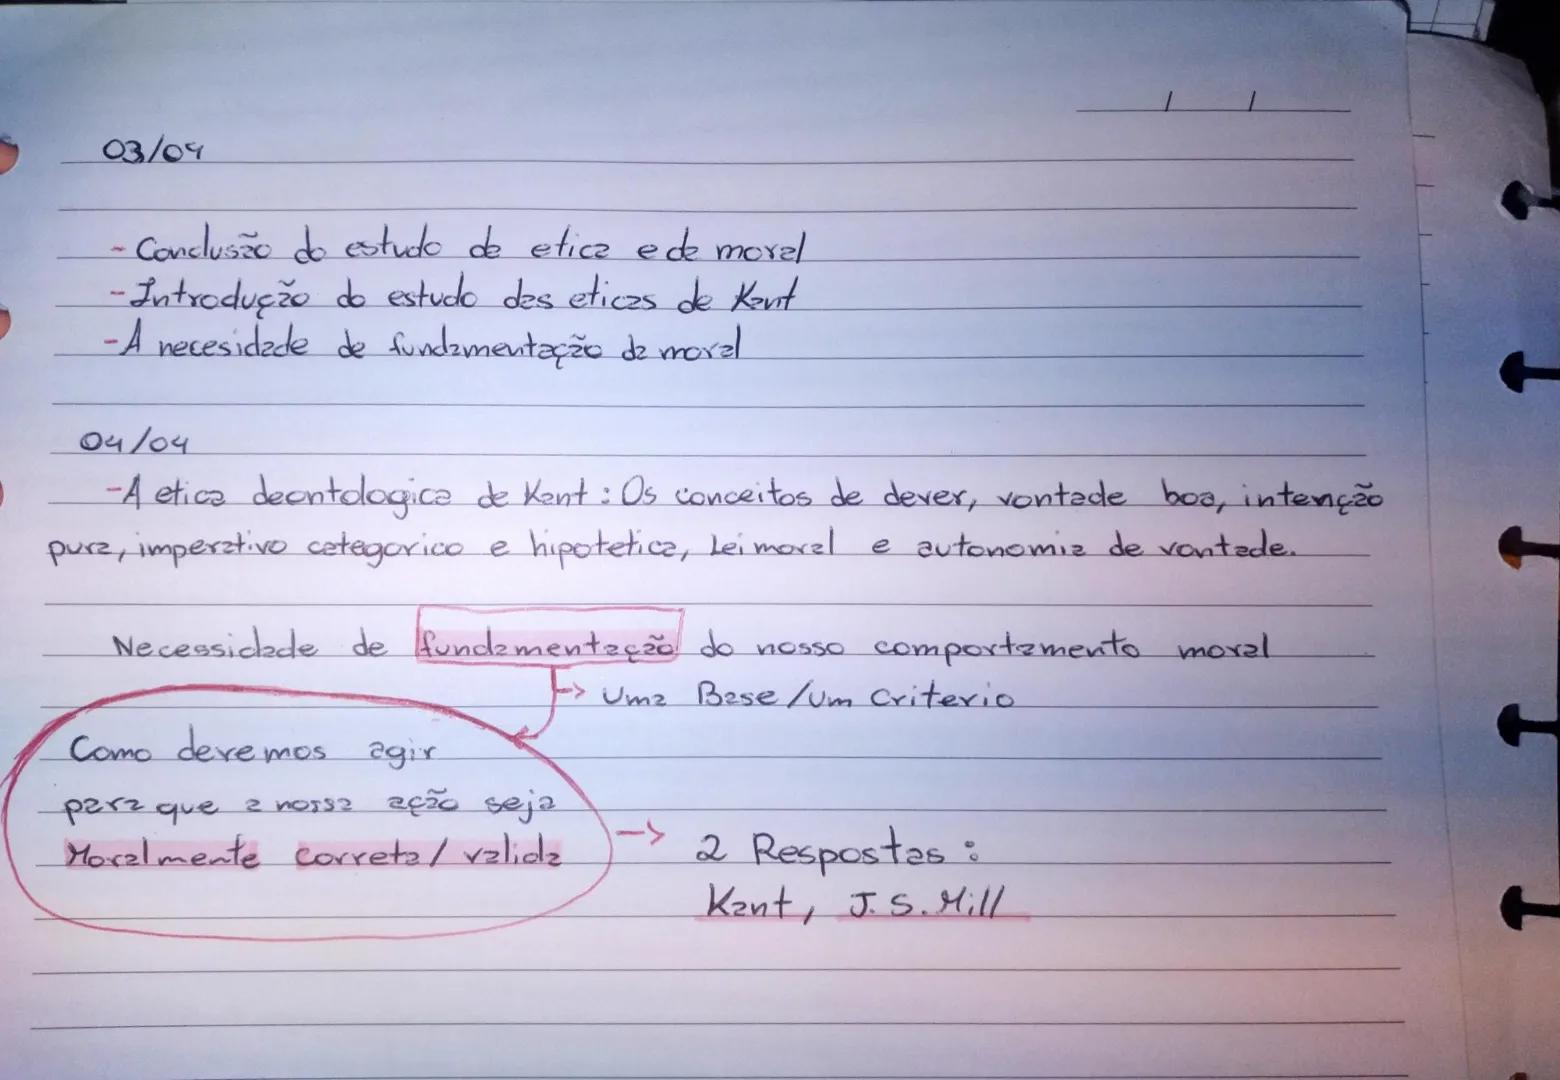 03/04
- Conclusão do estudo de etica e de moral
- Introdução do estudo das eticas de Kant
- A necesidade de fundamentação da moral
04/04
- A etica deontologica de Kant : Os conceitos de dever, vontade boa, intenção
pura, imperativo categorico e hipotetica, Lei moral e autonomia de vontade.
Necessidade de fundamentação do nosso comportamento moral
-> Uma Base / Um Criterio
Como devemos agir
para que a nossa ação seja
Moralmente correta / valida
-> 2 Respostas :
Kant, J. S. Mill